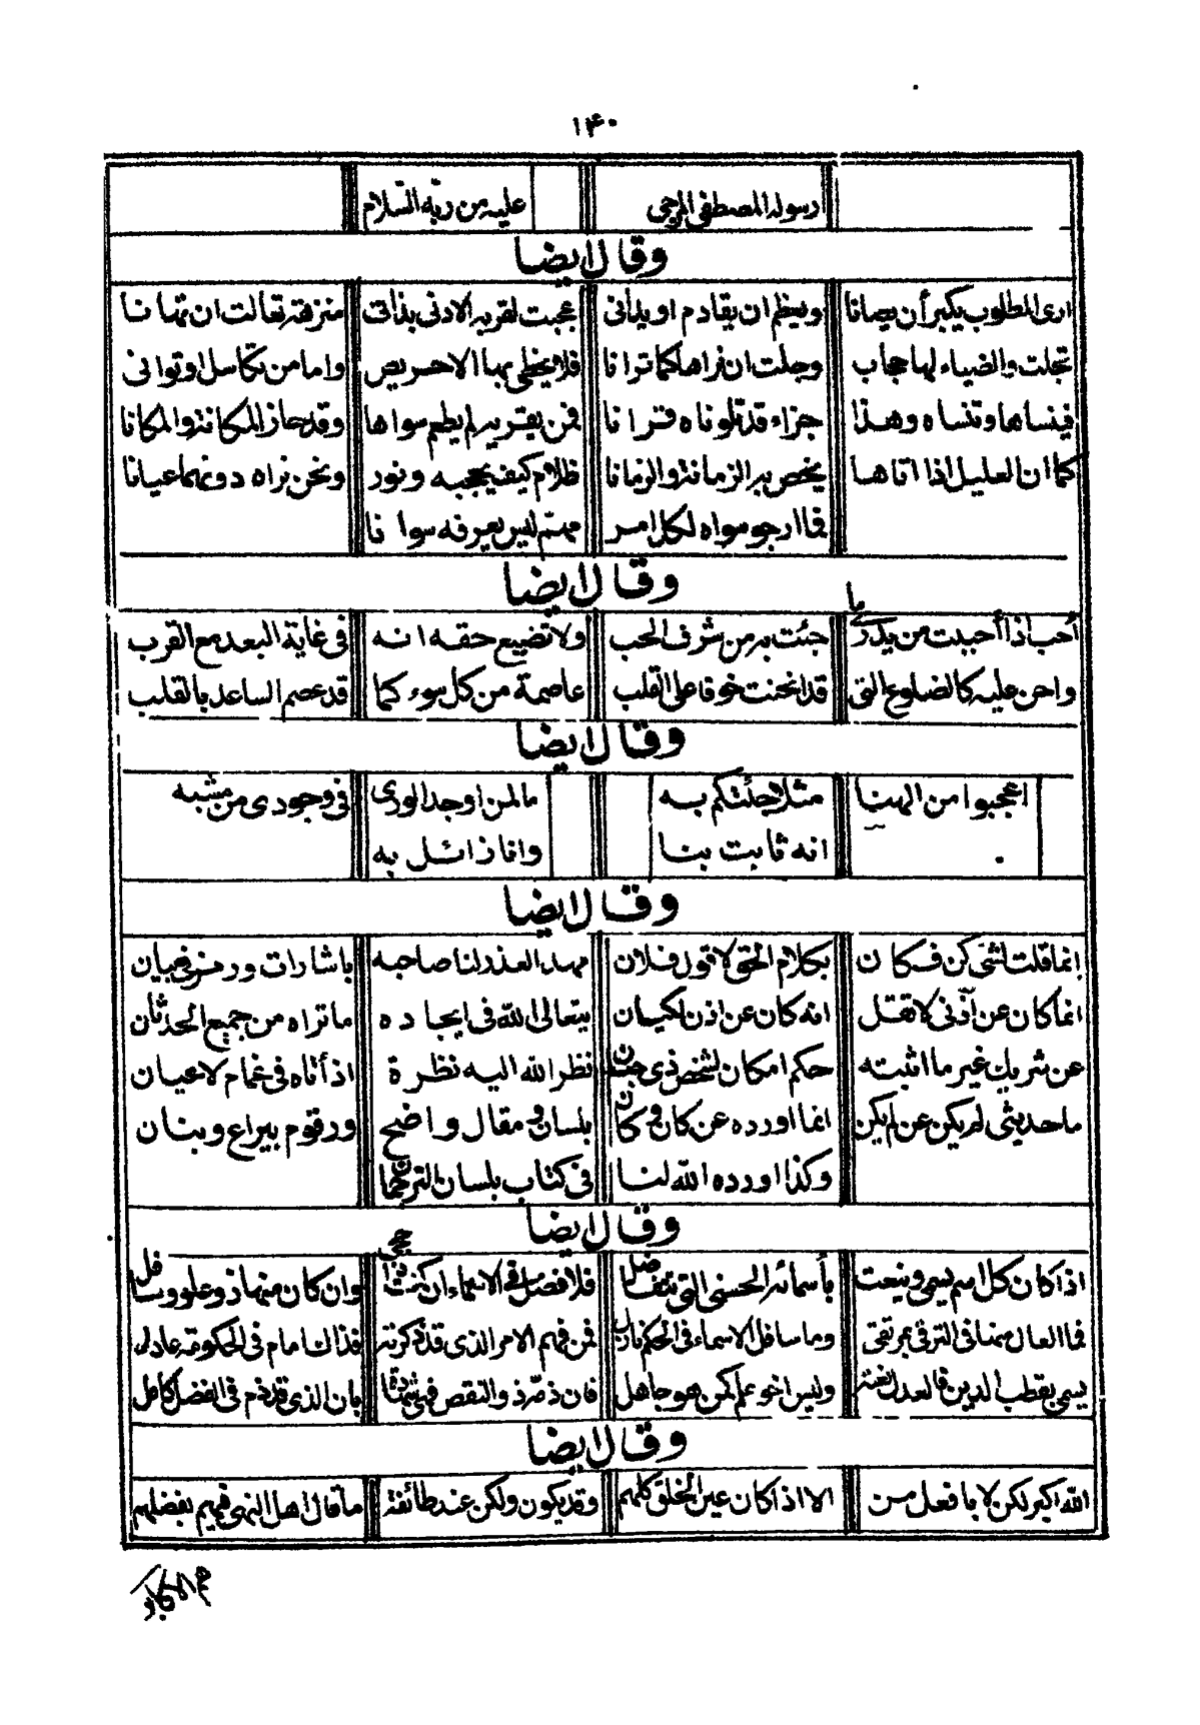 ١٤٠
ارسوله المصطفى المرجى عليه من ربه السلام
وقال ايضا
ارى المطلوب يكبر أن يصانا ويعظم ان يقادم او يدانى عجبت لقربه الادنى بذاتى منزهة تعالت ان تهانا
تجلت والضياء لها حجاب وجلت ان نراها كما ترانا فلا يحظى بها الا حريص واما من تكاسل او توانى
فينساها وتنساه وهذا جزاء قد تلوناه قرانا فمن يقربه لم يطعم سواها وقد حاز المكانة والمكانا
كما ان العليل اذا اتاها يخص به الزمانة والزمانا ظلام كيف يحجبه ونور ونحن نراه دونهما عيانا
فما ارجو سواه لكل امر مهتم ليس يعرفه سوانا
وقال ايضا
أحب اذا أحببت من يدرى ما جئت به من شرف الحب ولا تضيع حقه انه فى غاية البعد مع القرب
واحن عليه كالضلوع التى قد انحنت خوفا على القلب عاصمة من كل سوء كما قد عصم الساعد بالقلب
وقال ايضا
اعجبوا من الهنا مثلا جئتكم به مالمن اوجد الورى فى وجودى من مشبه
انه ثابت بنا وانا زائل به
وقال ايضا
إنما قلت لشئ كن فكان بكلام الحق لا قول فلان مهد العذر لنا صاحبه باشارات ورمز فى بيان
انما كان عن آذنى لا تقل انه كان عن اذن لكيان يتعالى الله فى ايجاده ما تراه من جميع الحدثان
عن شريك غير ما اثبته حكم امكان لشخص ذى جنان نظر الله اليه نظرة اذ أتاه فى غمام لا عيان
ما حديثى لم يكن عن لم يكن انما اورده عن كان وكان بلسان ومقال واضح ورقوم بيراع وبنان
وكذا اورده الله لنا فى كتاب بلسان الترجمان
وقال ايضا
اذا كان كل اسم يسمى وينعت بأسمائه الحسنى التى تتفاضل فلا فضل فى الاسماء ان كنت ذا حجى وان كان منها ذو علو وسافل
فما العال منها فى الترقى بمرتقى وما سافل الاسماء فى الحكم نازل فمن فهم الامر الذى قد ذكرته فذاك امام فى الحكومة عادل
يسمى بقطب الدين فالعدل نعته وليس اخو علم كمن هو جاهل فان ذمه ذو النقص فهى شهادة بان الذى قد ذم فى الفضل كامل
وقال ايضا
الله اكبر لكن لا بافعل من الا اذا كان عين الخلق كلهم وقد يكون ولكن عند طائفة ما قال اهل النهى فيهم بفضلهم